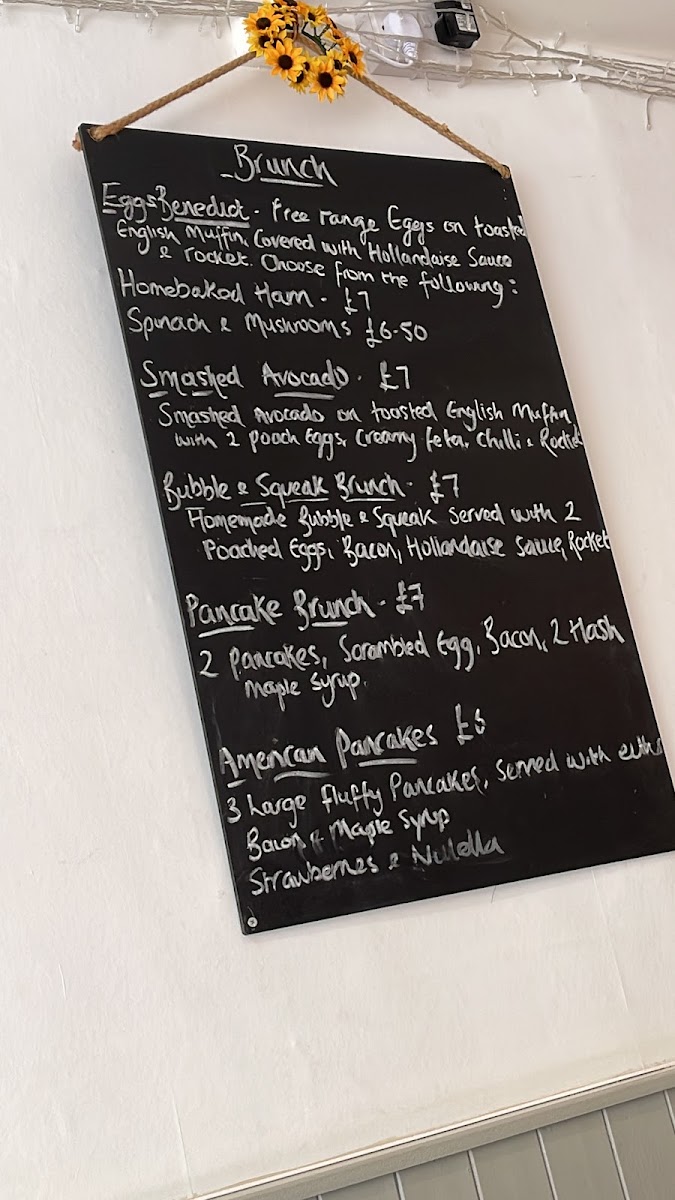 Brunch
Eggs Benedict - Free range Eggs on toasted
English Muffin, Covered with Hollandaise Sauce
& rocket. Choose from the following:
Homebaked Ham - £7
Spinach & Mushrooms £6-50
Smashed Avocado - £7
Smashed Avocado on toasted English Muffin
with 2 poach Eggs, Creamy feta, Chilli & Rocket
Bubble & Squeak Brunch - £7
Homemade Bubble & Squeak Served with 2
Poached Eggs, Bacon, Hollandaise Sauce, Rocket
Pancake Brunch - £7
2 Pancakes, Scrambled Egg, Bacon, 2 Hash
Maple Syrup.
American Pancakes £6
3 Large Fluffy Pancakes, Served with either
Bacon & Maple Syrup
Strawberries & Nutella